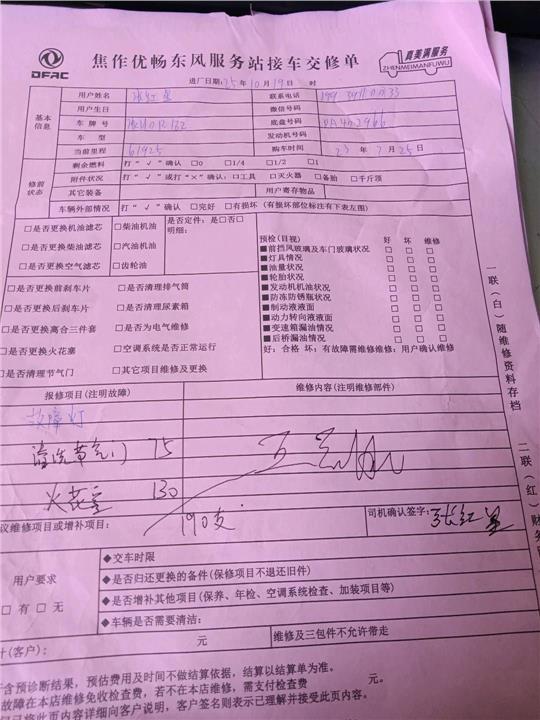 DFAC
焦作优畅东风服务站接车交修单
真美满服务
ZHENMEIMANFUWU
进厂日期:25年10月19日 时
基本信息
用户姓名 联系电话
用户生日 微信号码
车牌号 底盘号码
车型 发动机号码
当前里程 61925 购车时间 23年7月25
修前状态
剩余燃料 打“√”确认 □0 □1/4 □1/2 □1
附件状况 打“√”或打“×”确认:□工具 □灭火器 □备胎 □千斤顶
其它装备 用户寄存物品
车辆外部情况 打“√”确认 □完好 □有损坏(有损坏部位标注有下表左图)
□是否更换机油滤芯 □柴油机油 是否定件:是□否□
明细:
□是否更换柴油滤芯 □汽油机油
□是否更换空气滤芯 □齿轮油
□是否更换前刹车片 □是否清理排气筒
□是否更换后刹车片 □是否清理尿素箱
□是否更换离合三件套 □是否为电气维修
□是否更换火花塞 □空调系统是否正常运行
□是否清理节气门 □其它项目维修及更换
预检(目视) 好 坏 维修
■前挡风玻璃及车门玻璃状况 □ □ □
■灯具情况 □ □ □
■油量状况 □ □ □
■轮胎状况 □ □ □
■发动机机油状况 □ □ □
■防冻防锈瓶状况 □ □ □
■制动液液面 □ □ □
■动力转向液液面 □ □ □
■变速箱漏油情况 □ □ □
■后桥漏油情况 □ □ □
好:合格 坏:有故障需维修维修:用户确认维修
报修项目(注明故障) 维修内容(注明维修部件)
故障灯
清洗节气门 75
火花塞 130
190支
议维修项目或增补项目: 司机确认签字: 张红星
用户要求
□有 □无
◆交车时限
◆是否归还更换的备件(保修项目不退还旧件)
◆是否增补其他项目(保养、年检、空调系统检查、加装项目等)
◆车辆是否需要清洁:
计(客户): 元 维修及三包件不允许带走
于含预诊断结果,预估费用及时间不做结算依据,结算以结算单为准。
故障在本店维修免收检查费,若不在本店维修,需支付检查费 元。
已将此页内容详细向客户说明,客户签名则表示已理解并接受此页内容。
一联(白)随维修资料存档
二联(红)财务